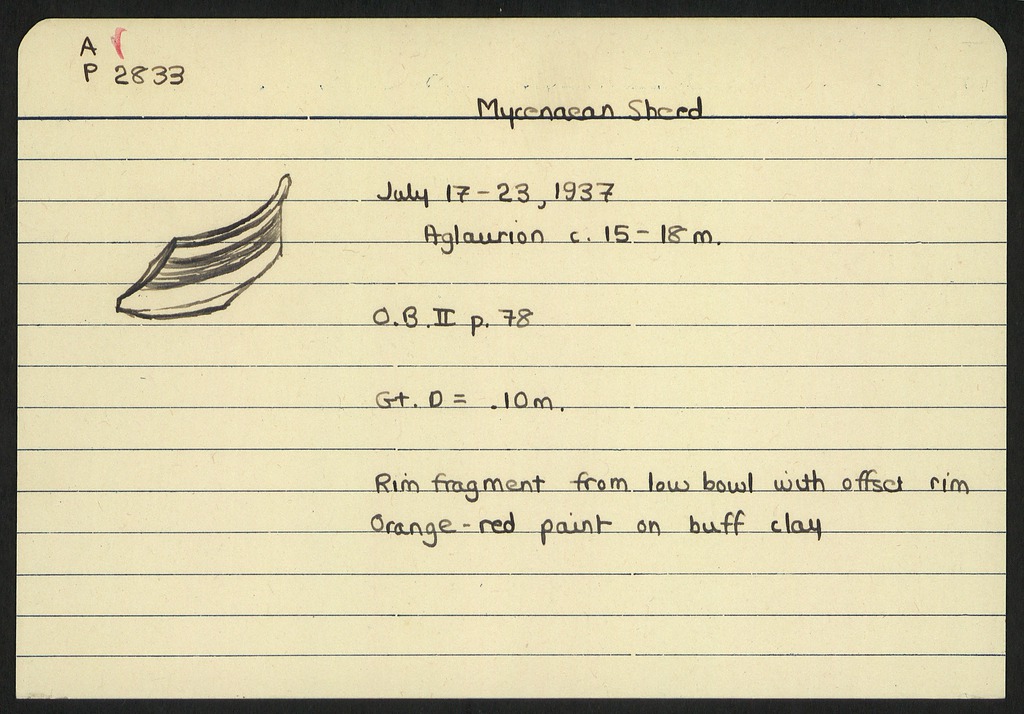 A
P 2833
Mycenaean Sherd
July 17-23, 1937
Aglaurion c. 15-18 m.
O.B. II p. 78
Gt. D = .10 m.
Rim fragment from low bowl with offset rim
Orange-red paint on buff clay